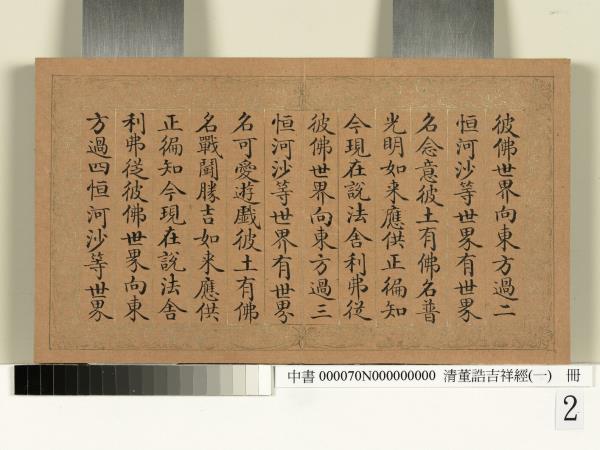 彼佛世界向東方過二
恒河沙等世界有世界
名念意彼土有佛名普
光明如来應供正徧知
今現在說法舎利弗從
彼佛世界向東方過三
恒河沙等世界有世界
名可愛遊戲彼土有佛
名戰鬪勝吉如来應供
正徧知今現在說法舎
利弗從彼佛世界向東
方過四恒河沙等世界
中書 000070N000000000 清董誥吉祥經(一) 冊
2